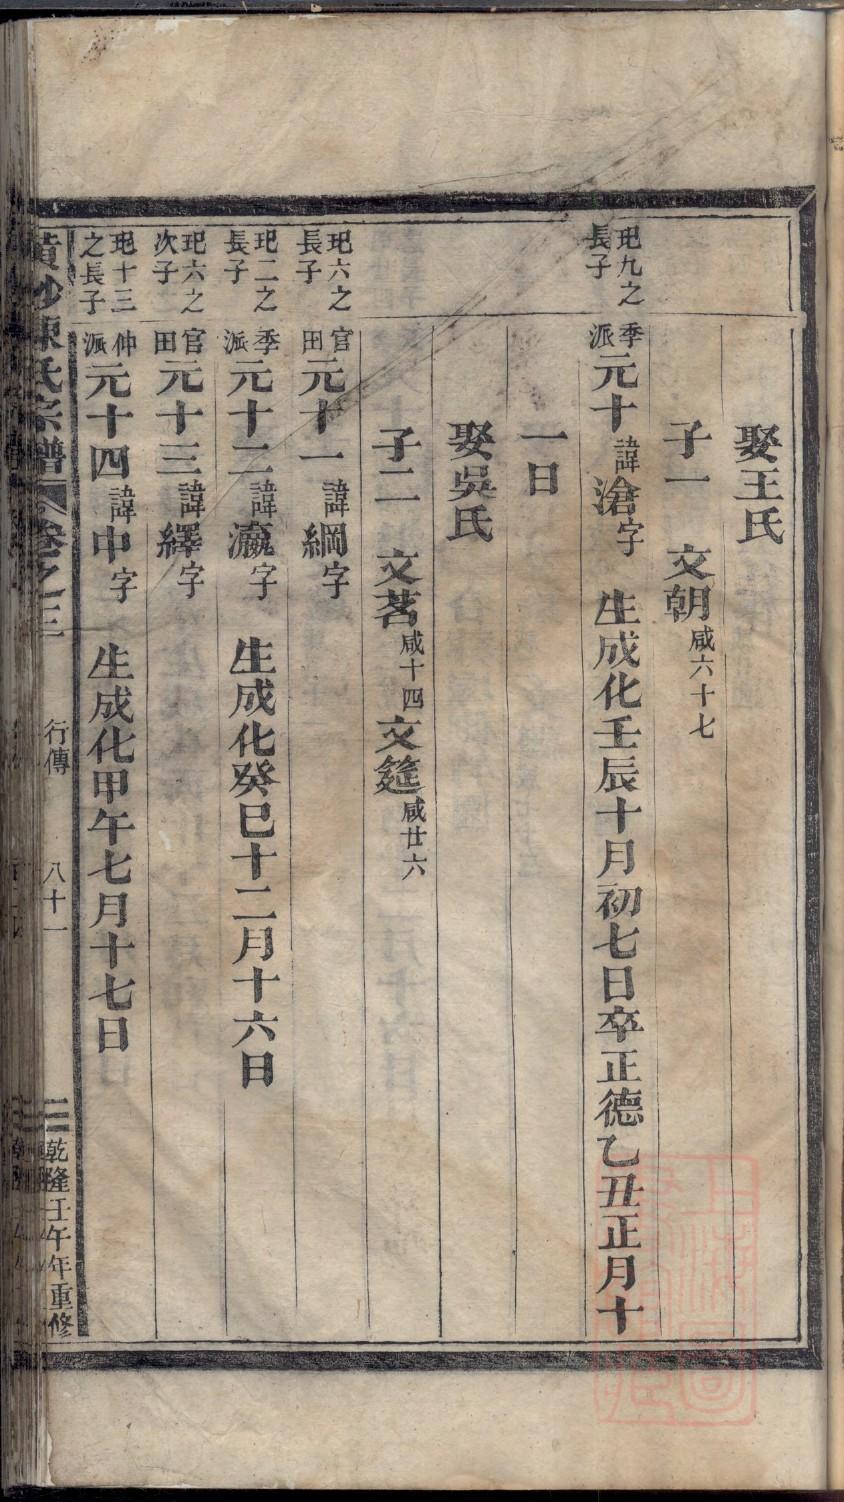 娶王氏
子一 文朝咸六十七
玘九之長子 季派元十諱滄字 生成化壬辰十月初七日卒正德乙丑正月十
一日
娶吳氏
子二 文茗咸十四文筵咸廿六
玘六之長子 官田元十一諱綱字
玘二之長子 季派元十二諱瀛字 生成化癸巳十二月十六日
玘六之次子 官田元十三諱繹字
玘十三之長子 仲派元十四諱申字 生成化甲午七月十七日
陳氏宗譜 卷之三 行傳 八十一 乾隆壬午年重修
上海圖書館藏